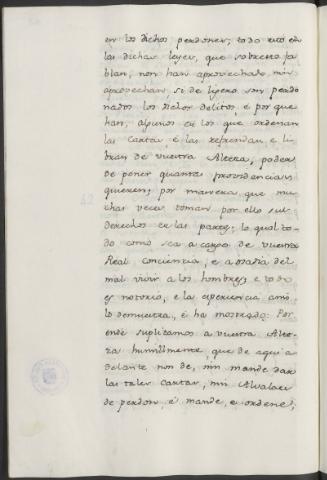 en los dichos perdones, todo esto en
las dichas leyes, que sobresto fa
blan, non han aprovechado, nin
aprovechan si de ligero son perdo
nados los dichos delitos, é por que
han, algunos en los que ordenan
las cartas, é las refrendan, e li
bran de vuestra Alteza, poder
de poner quantas providencias
quieren; por manera, que mu
chas veces toman por ello sus
derechos en las partes; lo qual to-
do como sea a cargo de vuestra
Real conciencia, e a osadia del
mal vivir a los hombres; e todo
es notorio, e la esperiencia ansi
lo demuestra, é ha mostrado: Por
ende suplicamos a vuestra Alte-
za humillmente, que de aqui a
delante non de, nin mande dar
las tales cartas, nin Alvalaes
de perdon, é mande, e ordene,